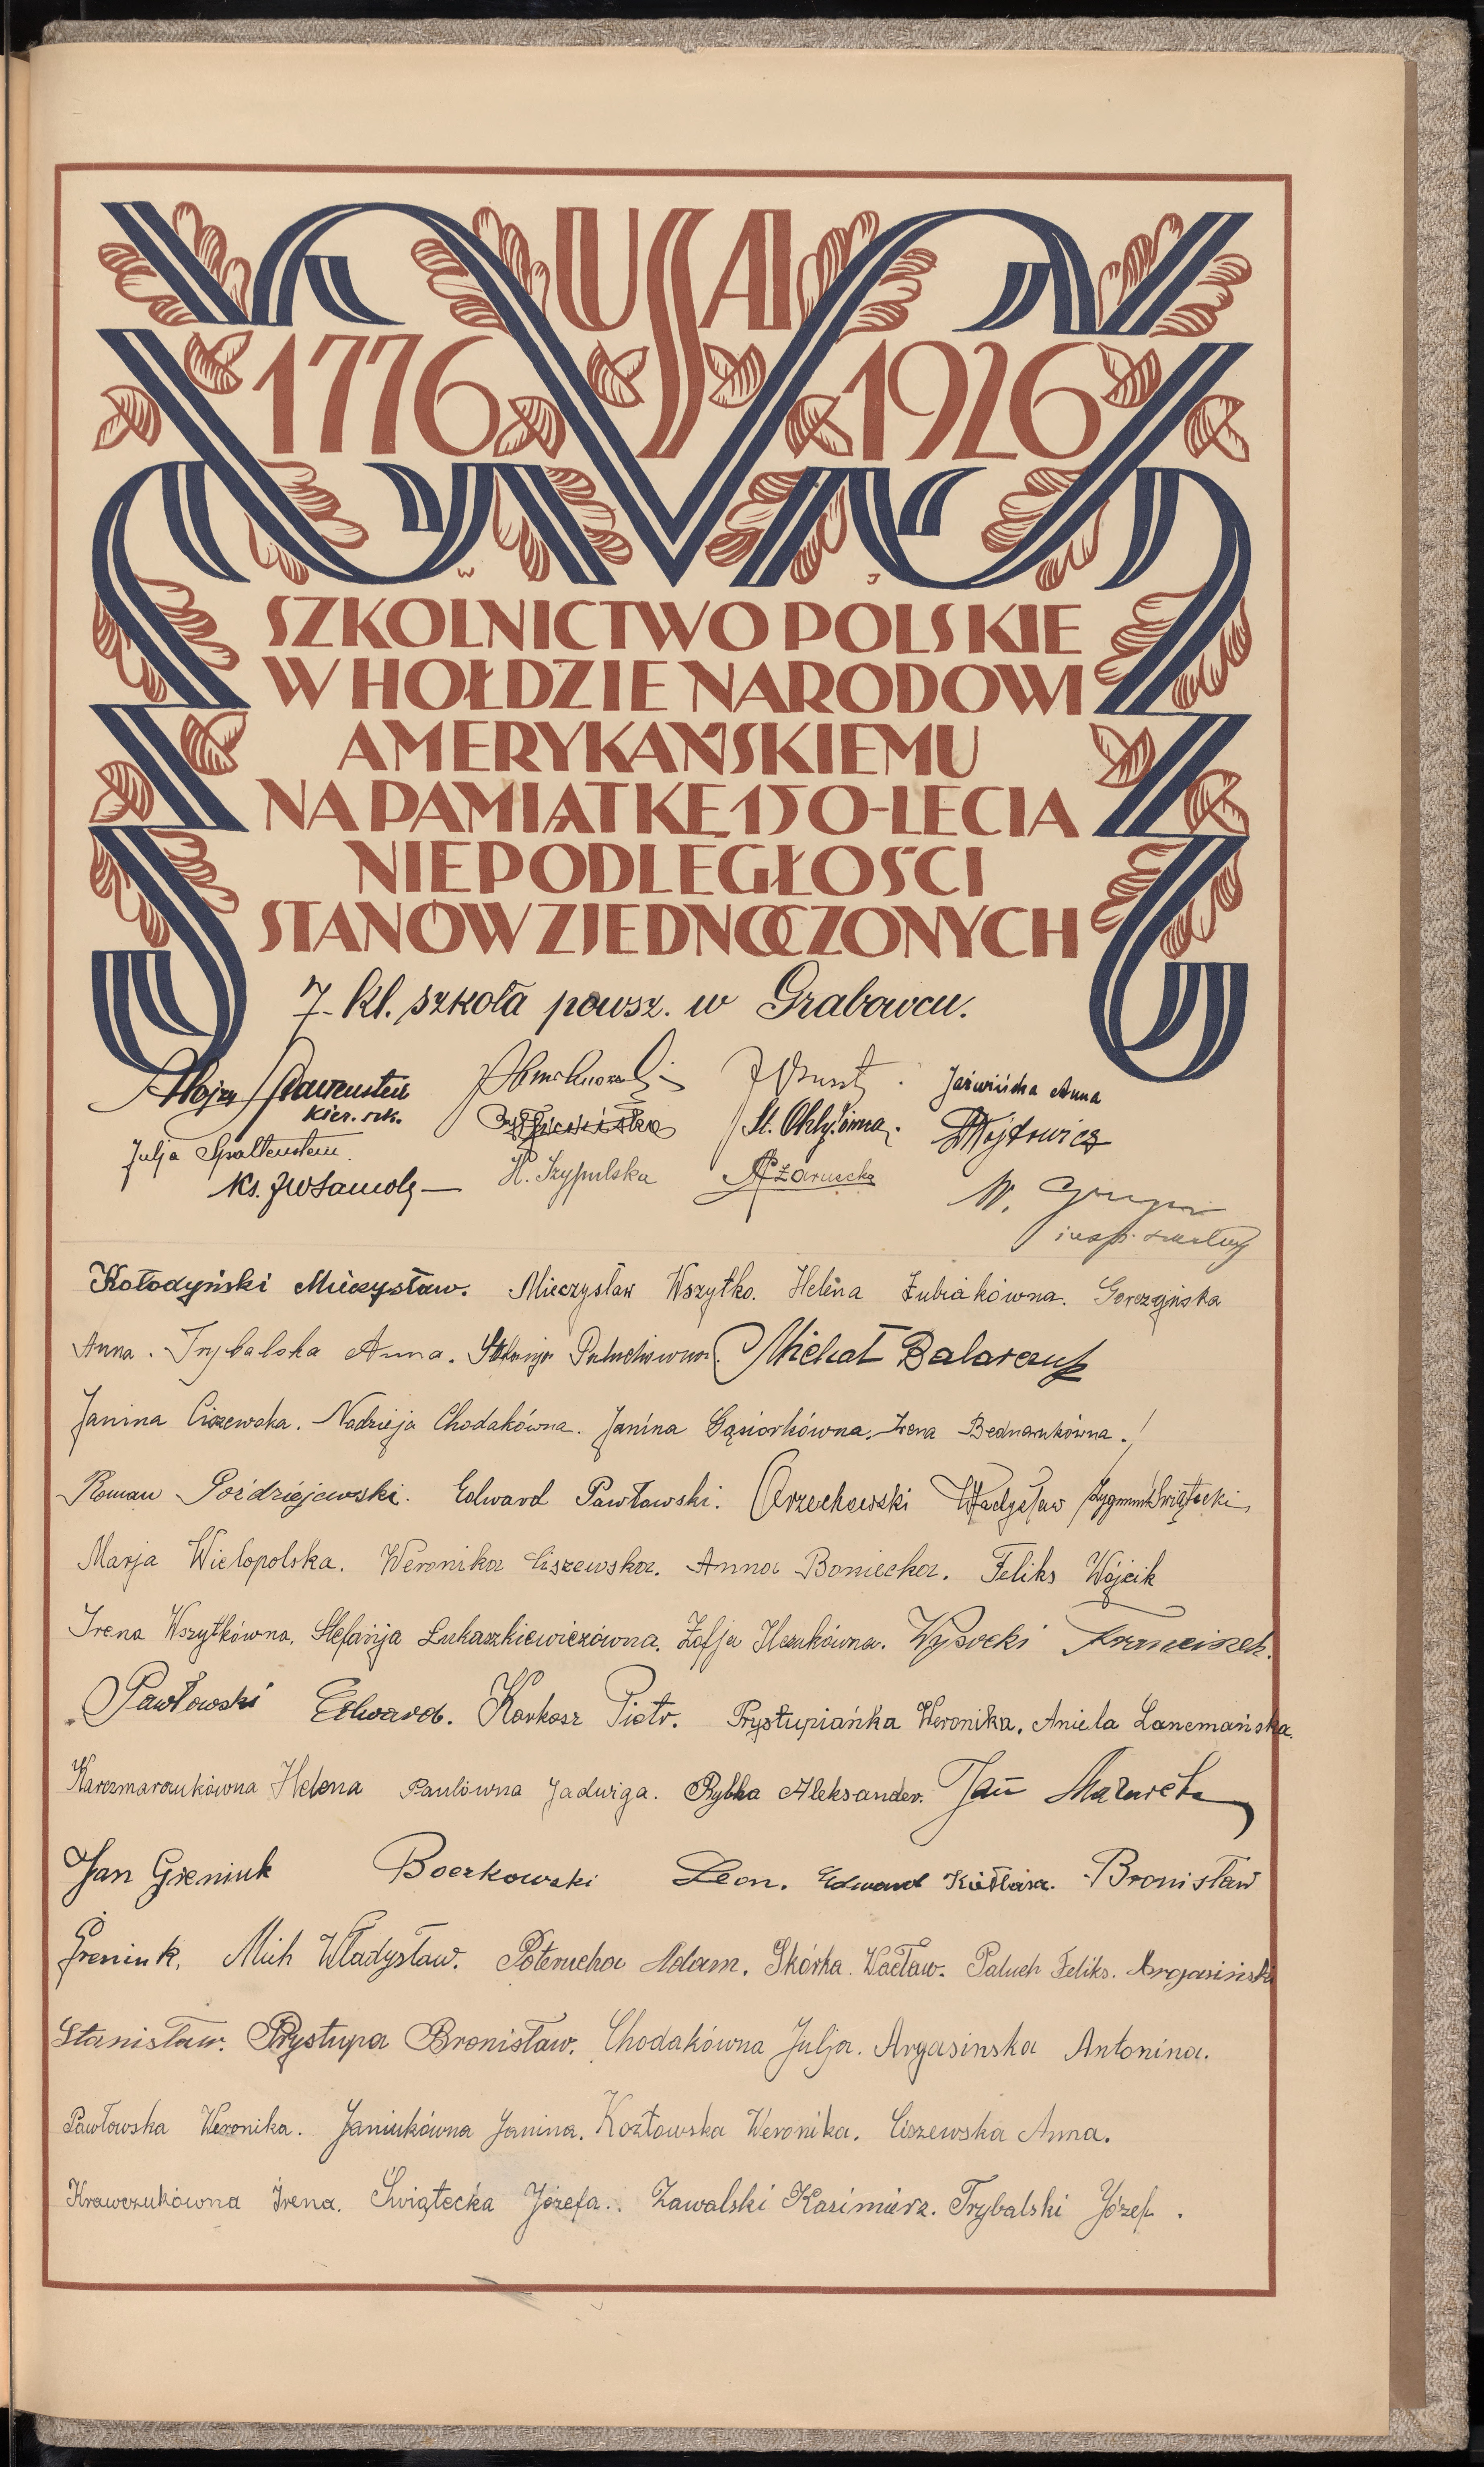 USA
1776 1926
W J
SZKOLNICTWO POLSKIE
W HOŁDZIE NARODOWI
AMERYKAŃSKIEMU
NA PAMIĄTKĘ 150-LECIA
NIEPODLEGŁOŚCI
STANÓW ZJEDNOCZONYCH
7-kl. szkoła powsz. w Grabowcu.
Jaźwińska Anna
kier. szk.
St. Wojtowicz
Julja Spaltenstein.
Ks. H. Szypulska
W.
Kołodyński Mieczysław. Mieczysław Wszytko. Helena Żubiakówna. Gorczyńska
Anna. Trybalska Anna. Paluchówna. Michał Balarczuk
Janina Ciszewska. Nadzieja Chodakówna. Janina Gąsiorkówna. Irena Bednarukówna.
Roman Poździejewski. Edward Pawławski. Orzechowski Władysław Zygmunt Świątecki
Marja Wielopolska. Weronika Ciszewska. Anna Boniecka. Feliks Wójcik
Irena Wszytkówna. Stefanja Łukaszkiewiczówna. Zofja Wysocki Franciszek.
Pawłowski Edward. Karkosz Piotr. Prystupiańka Weronika. Aniela Lanemańska.
Karczmarczukówna Helena Paulówna Jadwiga. Rybka Aleksander. Jan Mazurek
Jan Greniuk Boczkowski Leon. Edward Bronisław
Greniuk. Mich Władysław. Poterucha Adam. Skórka Wacław. Paluch Feliks. Argasiński
Stanisław. Prystupa Bronisław. Chodakówna Julja. Argasinska Antonina.
Pawłowska Weronika. Janiukówna Janina. Kozłowska Weronika. Ciszewska Anna.
Krawczukówna Irena. Świątecka Józefa.. Zawalski Kazimierz. Trybalski Józef.